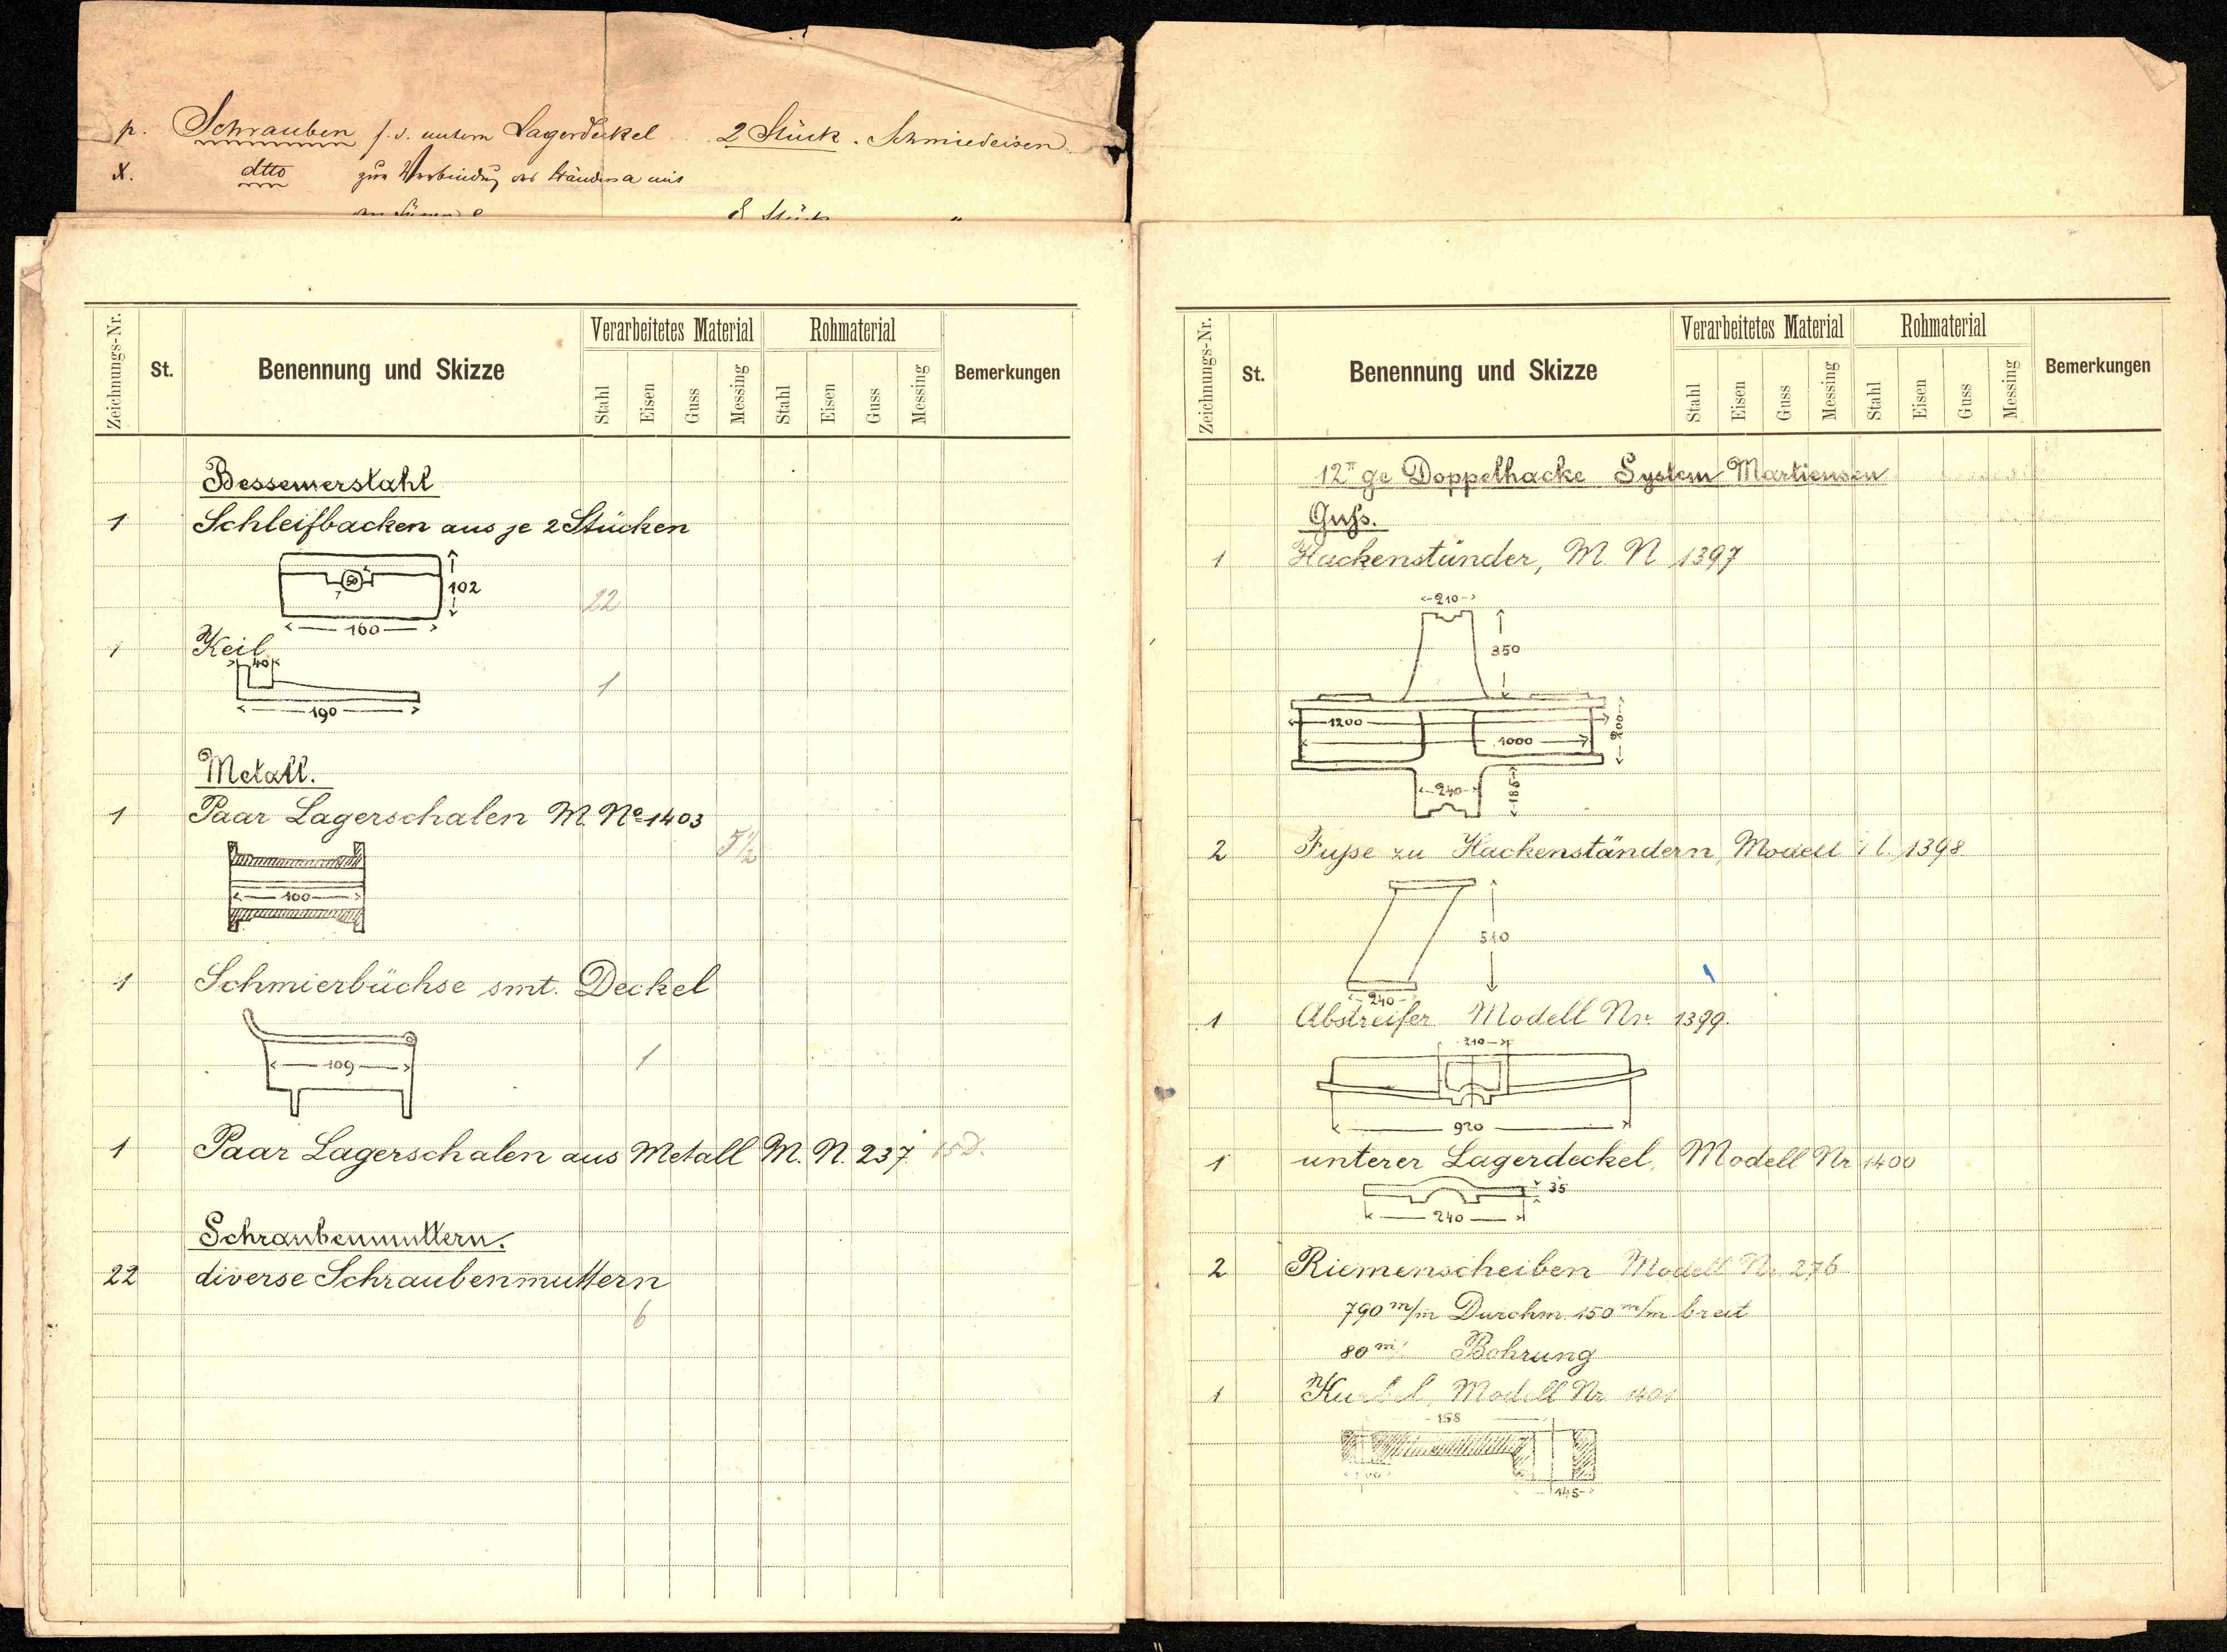 p. Schrauben f. d. untern Lagerdeckel 2 Stück. Schmiedeisen
x. dtto zur Verbindung des Ständers a mit
8 Stück "
Zeichnungs-Nr. St. Benennung und Skizze Verarbeitetes Material Rohmaterial Bemerkungen
Stahl Eisen Guss Messing Stahl Eisen Guss Messing
Bessemerstahl
1 Schleifbacken aus je 2 Stücken
50
102
22
160
1 Keil
40
1
190
Metall.
1 Paar Lagerschalen M. No 1403
5 1/2
100
1 Schmierbüchse smt. Deckel
109
1
1 Paar Lagerschalen aus Metall M. N. 237
Schraubenmuttern.
22 diverse Schraubenmuttern
6
Zeichnungs-Nr. St. Benennung und Skizze Verarbeitetes Material Rohmaterial Bemerkungen
Stahl Eisen Guss Messing Stahl Eisen Guss Messing
12" ge Doppelhacke System Martiensen
Guss.
1 Hackenständer, M. N 1397
210
350
1200
200
1000
240
186
2 Füsse zu Hackenständern, Modell 1398
510
240
1 Abstreifer Modell Nr. 1399.
210
920
1 unterer Lagerdeckel, Modell Nr 1400
35
240
2 Riemenscheiben Modell Nr. 276
790 m/m Durchm. 150 m/m breit
80 m/ Bohrung
1 Kurbel, Modell Nr. 1401
158
145